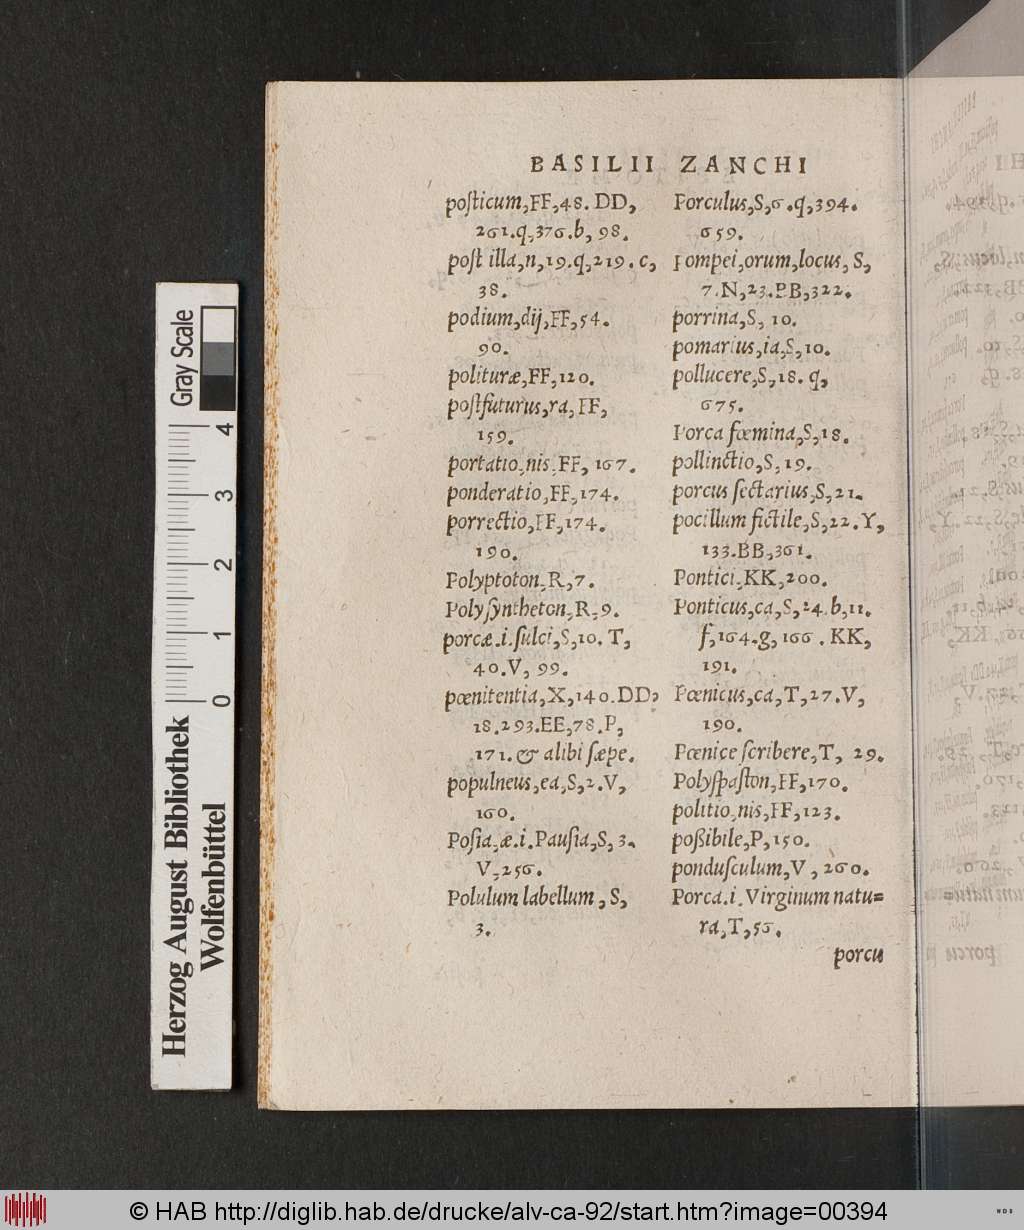 BASILII ZANCHI
poſticum,FF,48. DD,
261.q,376.b, 98.
poſt illa,n,19.q,219. c,
38.
podium,dij,FF,54.
90.
polituræ,FF,120.
poſtfuturus,ra,FF,
159.
portatio,nis,FF, 167.
ponderatio,FF,174.
porrectio,FF,174.
190.
Polyptoton,R,7.
Polyſyntheton,R,9.
porcæ.i.ſulci,S,10. T,
40.V, 99.
pœnitentia,X,140.DD,
18.293.EE,78.P,
171.& alibi ſæpe.
populneus,ea,S,2.V,
160.
Poſia,æ.i.Pauſia,S,3.
V,256.
Polulum labellum , S,
3.
Porculus,S,6.q,394.
659.
Pompei,orum,locus, S,
7.N,23.BB,322.
porrina,S, 10.
pomarius,ia,S,10.
pollucere,S,18. q,
675.
Porca fœmina,S,18.
pollinctio,S,19.
porcus ſectarius,S,21.
pocillum fictile,S,22.Y,
133.BB,361.
Pontici,KK,200.
Ponticus,ca,S,24.b,11.
f,164.g,166 . KK,
191.
Pœnicus,ca,T,27.V,
190.
Pœnice ſcribere,T, 29.
Polyſpaſton,FF,170.
politio,nis,FF,123.
poßibile,P,150.
ponduſculum,V , 260.
Porca.i.Virginum natu=
ra,T,56.
porcu
Gray Scale
0 1 2 3 4
Herzog August Bibliothek
Wolfenbüttel
© HAB http://diglib.hab.de/drucke/alv-ca-92/start.htm?image=00394